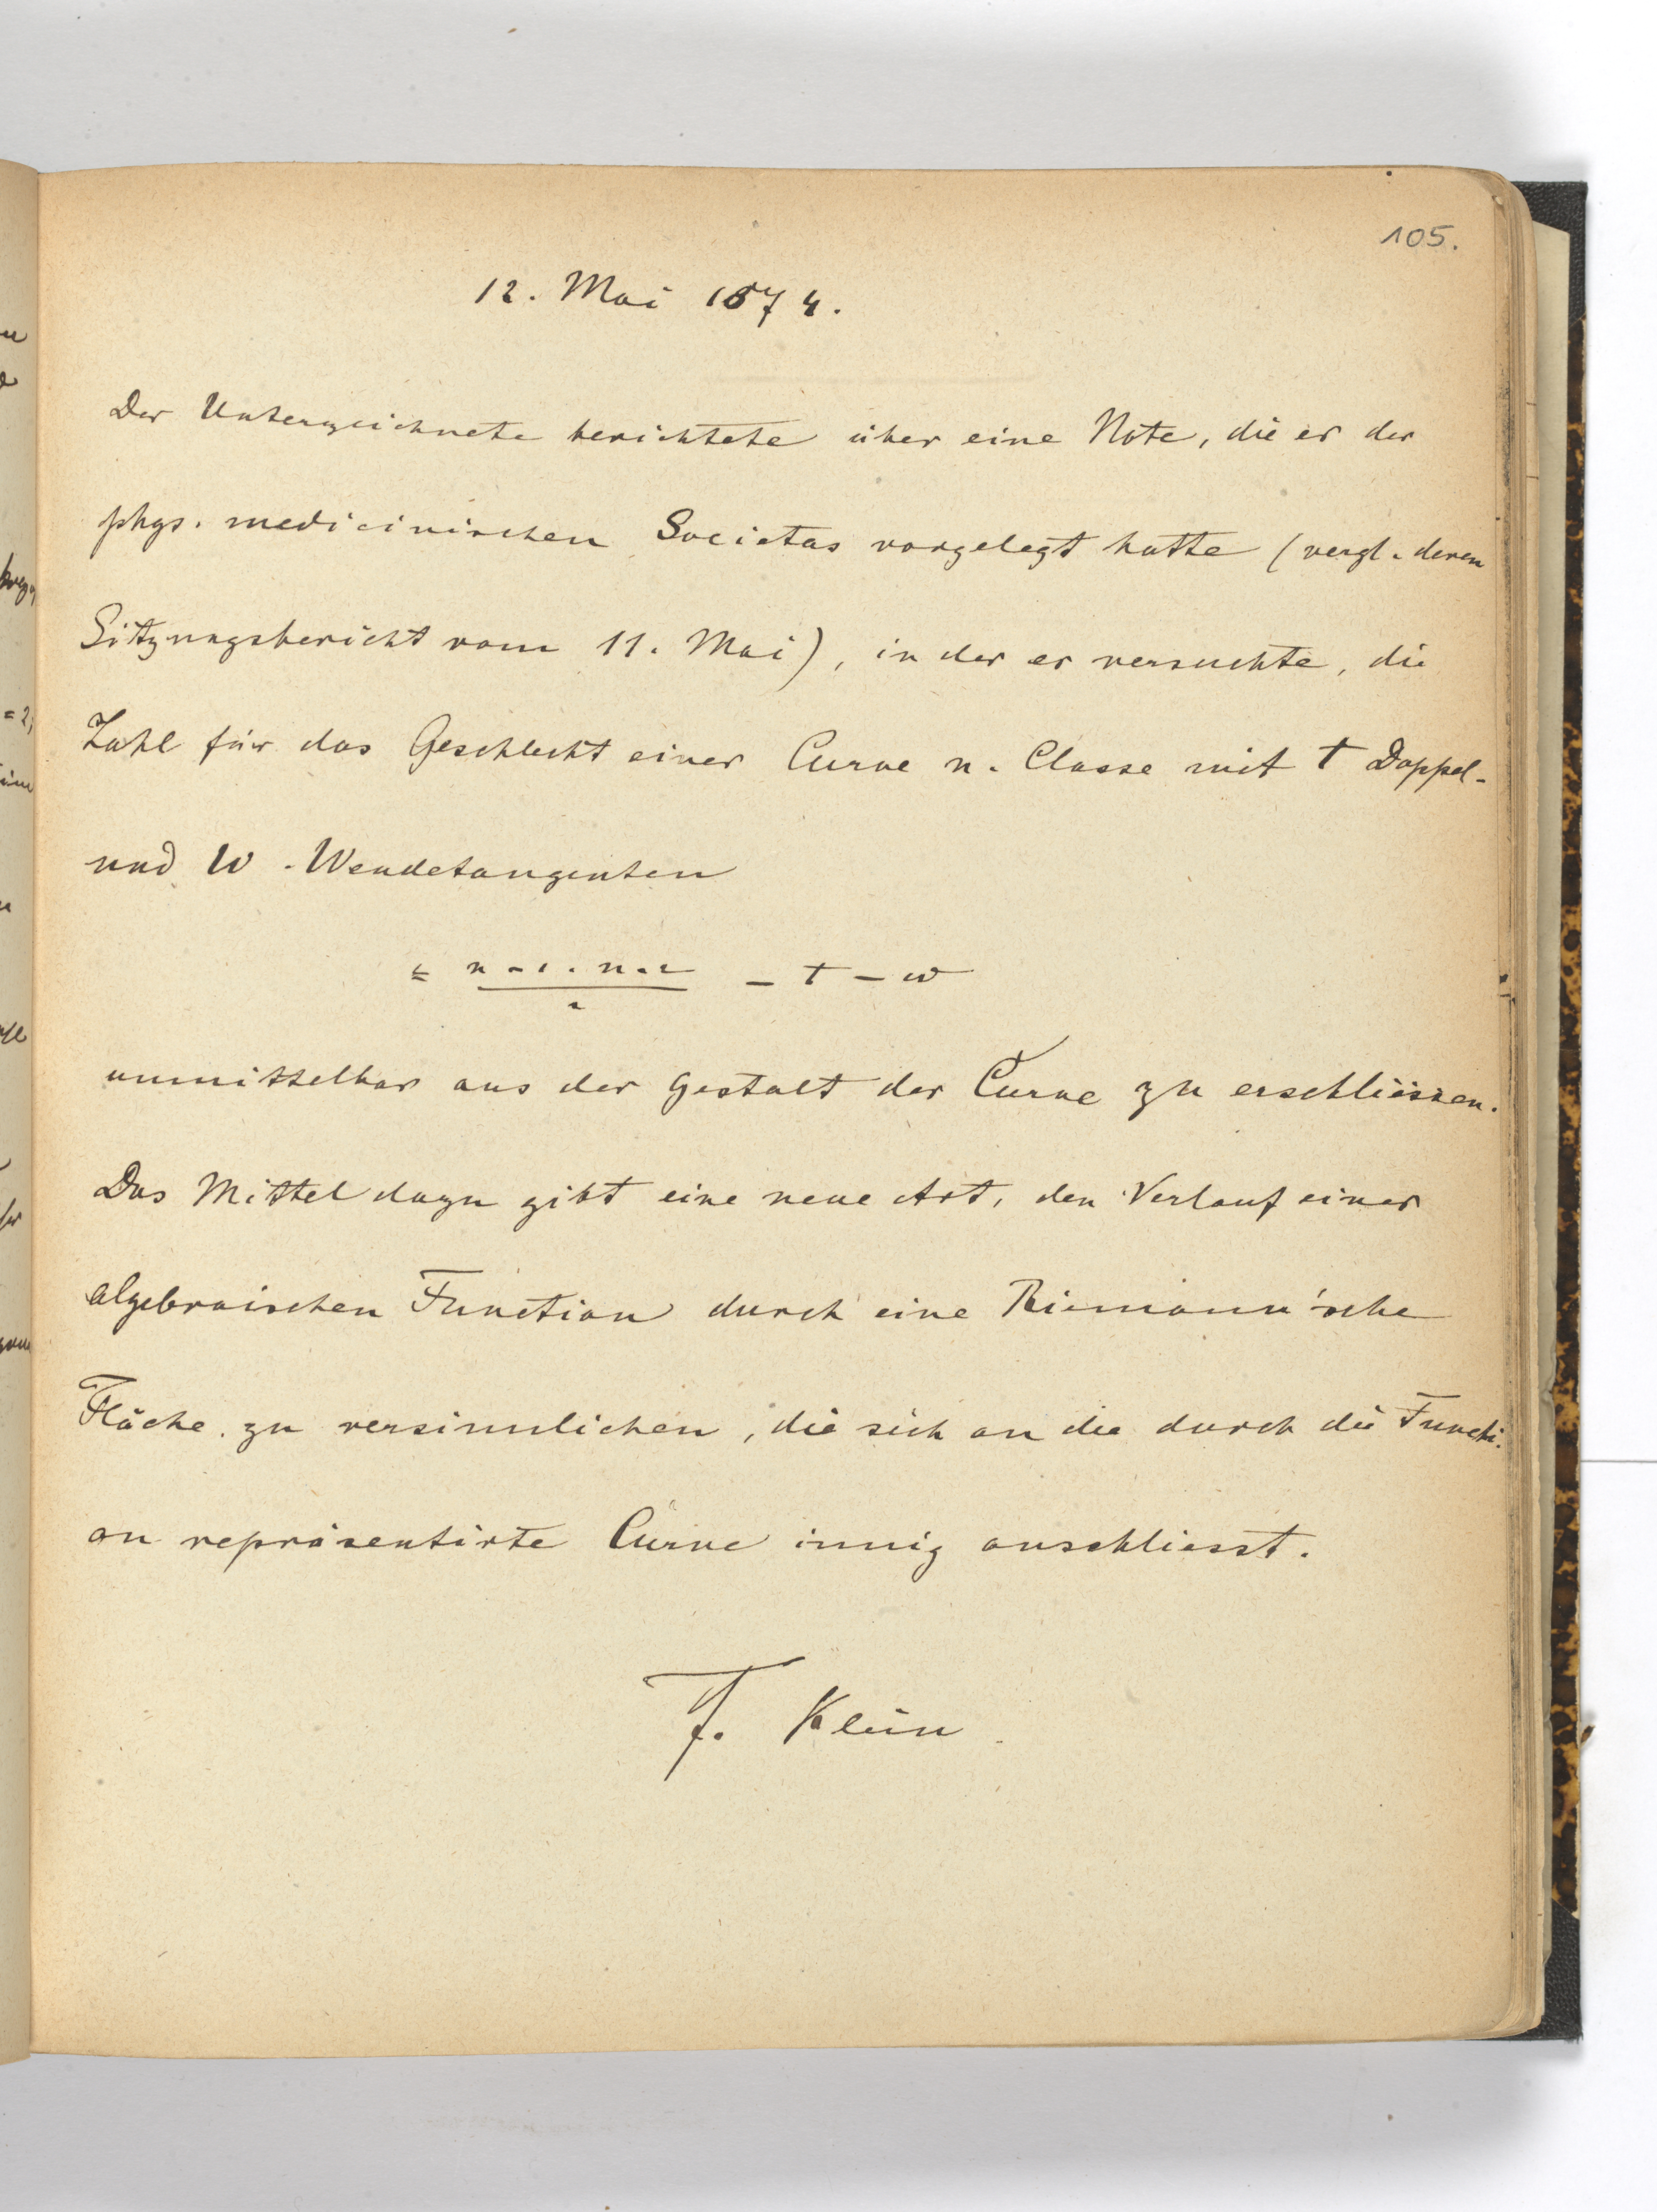 105.
12. Mai 1874.
Der Unterzeichnete berichtete über eine Note, die er der
phys. medicinischen Societas vorgelegt hatte (vergl. deren
Sitzungsbericht vom 11. Mai), in der er versuchte, die
Zahl für das Geschlecht einer Curve n. Classe mit t Doppel-
und w - Wendetangenten
= n-1. n-2 / 2 - t - w
unmittelbar aus der Gestalt der Curve zu erschliessen.
Das Mittel dazu gibt eine neue Art, den Verlauf einer
algebraischen Function durch eine Riemann'sche
Fläche zu versinnlichen, die sich an die durch die Functi-
on repräsentirte Curve innig anschliesst.
F. Klein